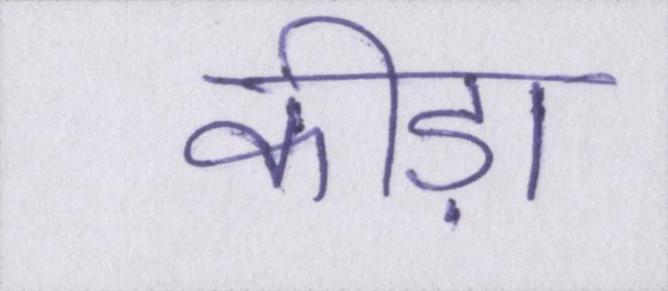 कीड़ा